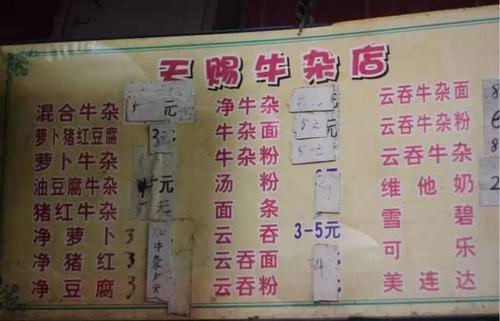 天赐牛杂店
混合牛杂 5元
萝卜猪红豆腐 3元
萝卜牛杂
油豆腐牛杂 元
猪红牛杂 元
净萝卜 3
净猪红 3
净豆腐 3
净牛杂
牛杂面 5元
牛杂粉 5元
汤粉
面条
云吞 3-5元
云吞面
云吞粉
云吞牛杂面 8
云吞牛杂粉
云吞牛杂 8
维他奶 2
雪碧
可乐
美连达